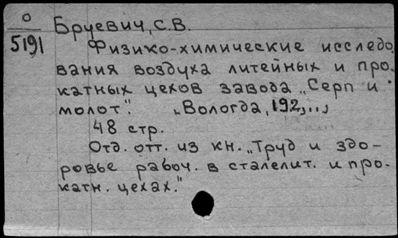 О
5191
Бруевич, С.В.
Физико-химические исследо-
вания воздуха литейных и про-
катных цехов завода „Серп и
молот". „Вологда, 192,..,
48 стр.
Отд. отт. из кн. „Труд и здо-
ровье рабоч. в сталелит. и про-
катн. цехах."